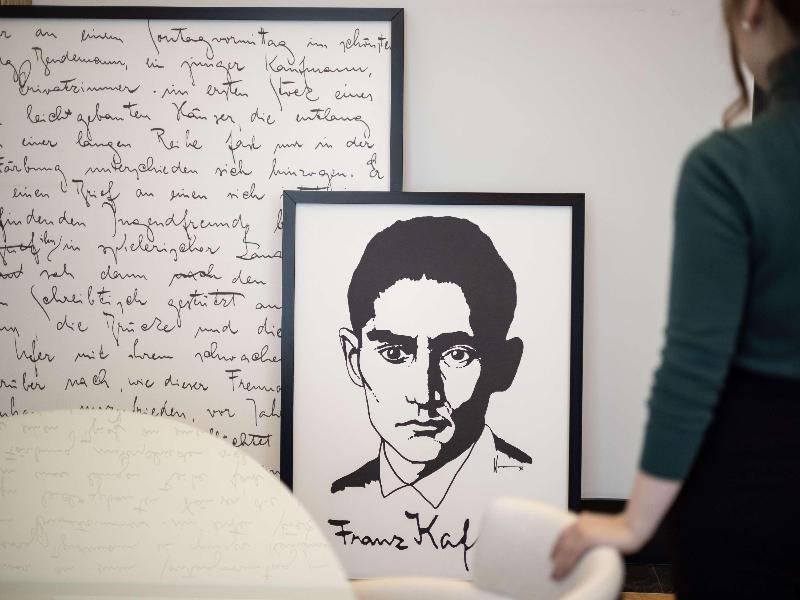 an einem Sonntagvormittag im schönsten
Bendemann, ein junger Kaufmann,
Privatzimmer im ersten Stock eines
leichtgebauten Häuser, die entlang
einer langen Reihe fast nur in der
Färbung unterschieden sich hinzogen. Er
einen Brief an einen sich
findenden Jugendfreund
in spielerischer
sah dann den
Schreibtisch gestützt
die Brücke und die
Ufer mit ihrem schwachen
nach, wie dieser Freund
zufrieden, vor
Franz Kaf